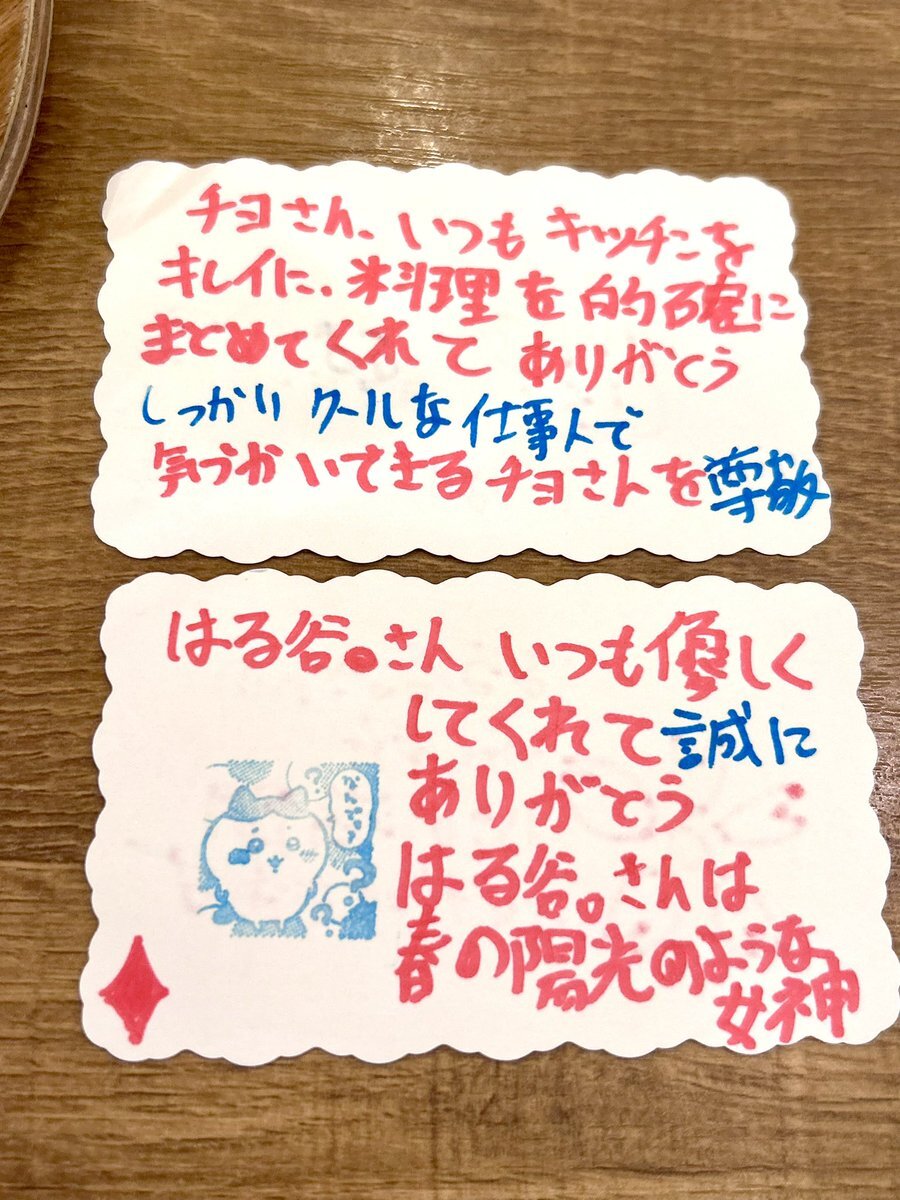 チヨさん、いつもキッチンを
キレイに、料理を的確に
まとめてくれてありがとう
しっかりクールな仕事人で
気づかいできるチヨさんを尊敬
はる谷。さん いつも優しく
してくれて誠に
ありがとう
はる谷。さんは
春の陽光のような
女神